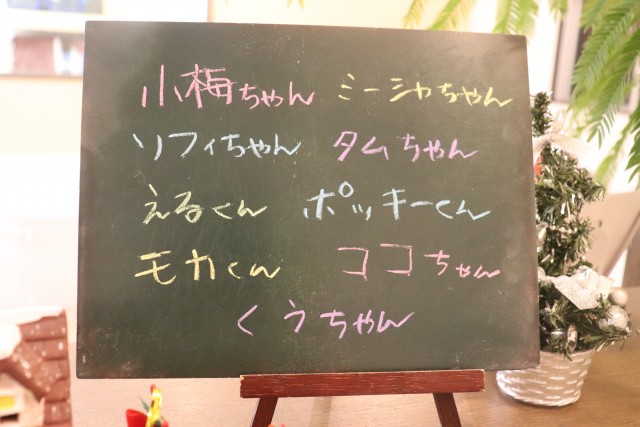 小梅ちゃん ミーシャちゃん
ソフィちゃん タムちゃん
えるくん ポッキーくん
モカくん ココちゃん
くうちゃん